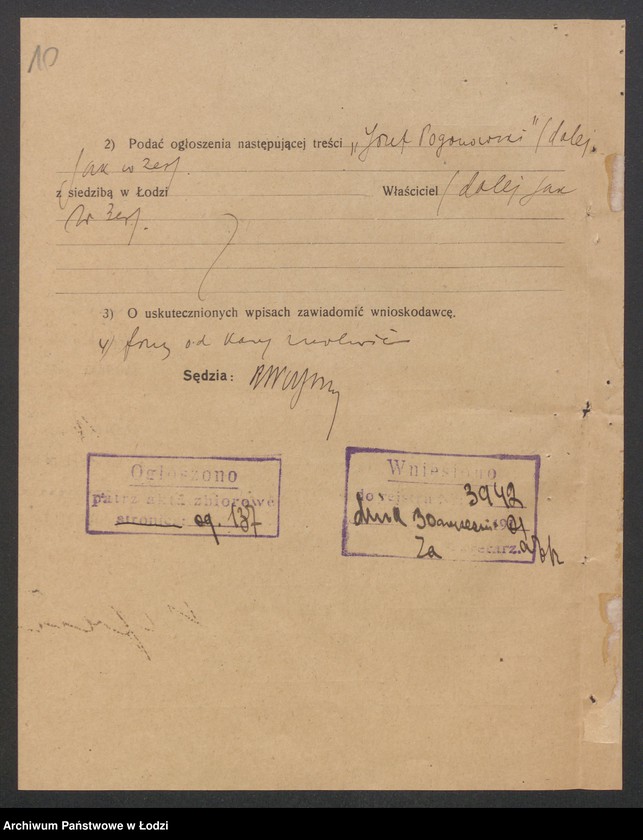 10
2) Podać ogłoszenia następującej treści „Józef Pogonowski” (dalej
jak w zesp.
z siedzibą w Łodzi Właściciel (dalej jak
w zesp.
3) O uskutecznionych wpisach zawiadomić wnioskodawcę.
4) firmę od kary uwolnić
Sędzia:
Ogłoszono
patrz akta zbiorowe
stronica cq. 137
Wniesiono
do rejestru 3942
dnia 30 września 192
Za Sekretarz.
Archiwum Państwowe w Łodzi